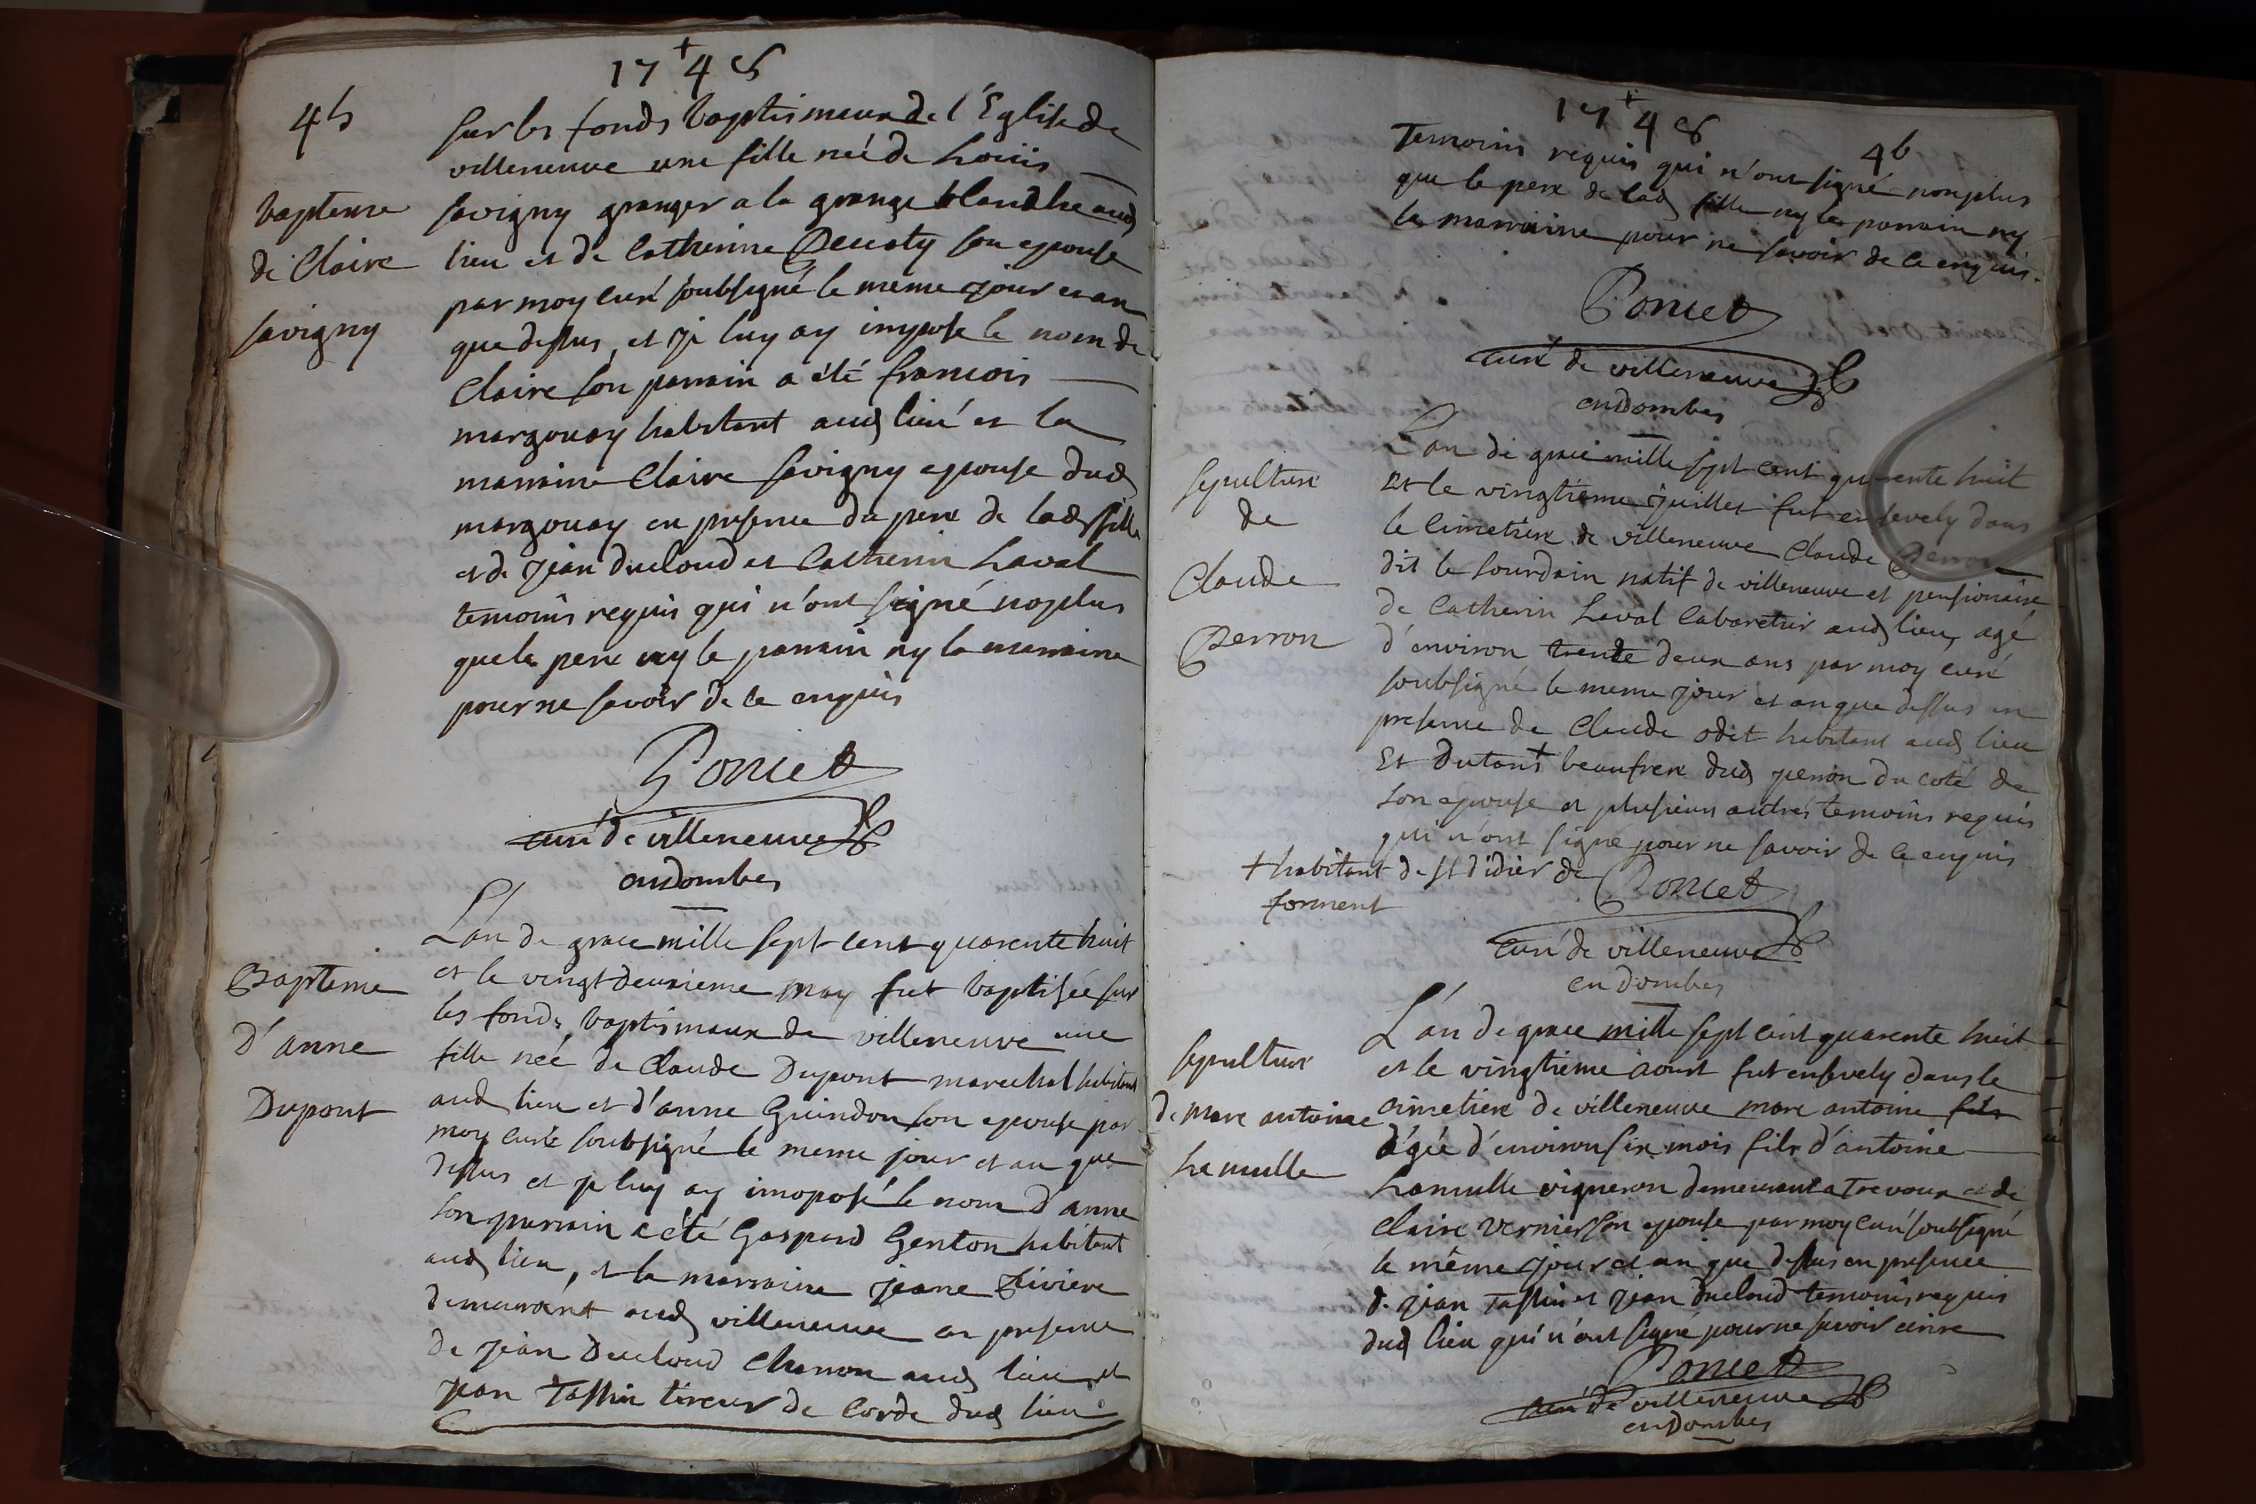 17+48
45
sur les fonds baptismaux de l'Eglise de
villeneuve une fille neé de Loüis
baptesme
de Claire
savigny
savigny granger a la grange blandhe aud
lieu et de Catherine Decroty son epouse
par moy curé soubsigné le meme jour et an
que dessus, et je luy ay imposé le nom de
Claire son parrain a été francois
margouay habitant aud lieu et la
marraine Claire savigny epouse dud
margouay en presence du pere de lad fille
et de jean ducloud et Catherin Laval
temoins requis qui n'ont signé nonplus
que le pere ny le parrain ny la marraine
pour ne savoir de ce enquis
Poncet
curé de villeneuve
endombes
Bapteme
D'anne
Dupont
L'an de grace mille sept cent quarente huit
et le vingtdeuxieme may fut baptisée sur
les fonds baptismaux de villeneuve une
fille neé de Claude Dupont marechal habitant
aud lieu et d'anne Guindon son epouse par
moy curé soubsigné le meme jour et an que
dessus et je luy ay imoposé le nom d'anne
son parrain a été Gaspard Genton habitant
aud lieu, et la marraine jeane Riviere
demeurant aud villeneuve en presence
de jean Ducloud Charron aud lieu et
jean Tassin tireur de Corde dud lieu
17+48
46
Temoins requis qui n'ont signé nonplus
que le pere de lad fille ny le parrain ny
la marraine pour ne savoir de ce enquis.
Poncet
curé de villeneuve
endombes
sepulture
de
Claude
Perron
L'an de grace mille sept cent quarente huit
et le vingtieme juillet fut ensevely dans
le cimetiere de villeneuve Claude Perron
dit le sourdain natif de villeneuve et pensionaire
de Catherin Laval Cabaretier aud lieu, agé
d'environ trente deux ans par moy curé
soubsigné le meme jour et an que dessus en
presence de Claude odet habitant aud lieu
Et Dutant + beaufrere dud perron du coté de
son epouse et plusieurs autres temoins requis
qui n'ont signé pour ne savoir de ce enquis
+ habitant de St didier de
forment
Poncet
curé de villeneuve
en Dombes
sepulture
de marc antoine
Lamulle
L'an de grace mille sept cent quarente huit
et le vingtieme aoust fut ensevely dans le
cimetiere de villeneuve marc antoine fils
agée d'environ six mois fils d'antoine
Lamulle vigneron demeurant a Trevoux et de
Claire Vernier son epouse par moy curé soubsigné
le même jour et an que dessus en presence
de jean Tassin et jean ducloud temoins requis
dud lieu qui n'ont signé pour ne savoir ecrire
Poncet
curé de villeneuve
en Dombes